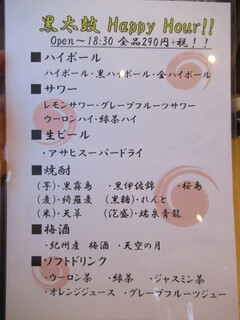 黒太鼓 Happy Hour!!
Open~18:30 全品290円+税!!
■ハイボール
ハイボール・黒ハイボール・金ハイボール
■サワー
レモンサワー・グレープフルーツサワー
ウーロンハイ・緑茶ハイ
■生ビール
・アサヒスーパードライ
■焼酎
(芋)・黒霧島 ・黒伊佐錦 ・桜島
(麦)・綺羅麦 (黒糖)・れんと
(米)・天草 (泡盛)・瑞泉青龍
■梅酒
・紀州産 梅酒 ・天空の月
■ソフトドリンク
・ウーロン茶 ・緑茶 ・ジャスミン茶
・オレンジジュース ・グレープフルーツジュー